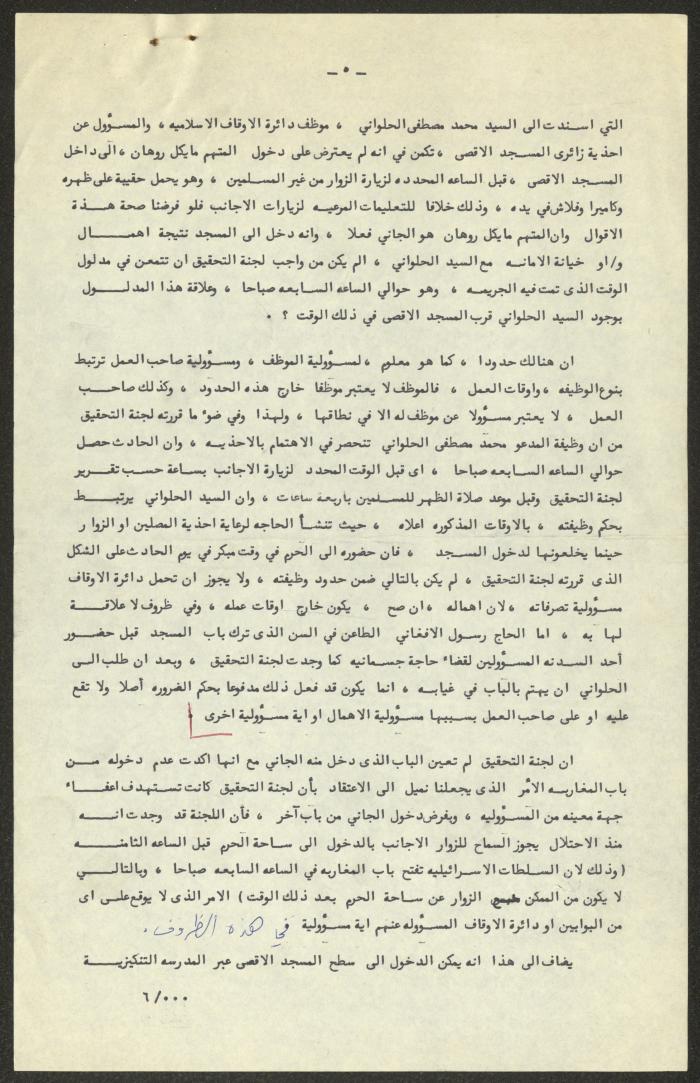 - ٥ -
التي اسندت الى السيد محمد مصطفى الحلواني ، موظف دائرة الاوقاف الاسلاميه ، والمسؤول عن
احذية زائرى المسجد الاقصى ، تكمن في انه لم يعترض على دخول المتهم مايكل روهان ، الى داخل
المسجد الاقصى ، قبل الساعه المحدده لزيارة الزوار من غير المسلمين ، وهو يحمل حقيبة على ظهره
وكاميرا وفلاش في يده ، وذلك خلافا للتعليمات المرعيه لزيارات الاجانب فلو فرضنا صحة هذة
الاقوال وان المتهم مايكل روهان هو الجاني فعلا ، وانه دخل الى المسجد نتيجة اهمال
و/او خيانة الامانه مع السيد الحلواني ، الم يكن من واجب لجنة التحقيق ان تتمعن في مدلول
الوقت الذى تمت فيه الجريمه ، وهو حوالي الساعه السابعه صباحا ، وعلاقة هذا المدلول
بوجود السيد الحلواني قرب المسجد الاقصى في ذلك الوقت ؟ .
ان هنالك حدودا ، كما هو معلوم ، لمسؤولية الموظف ، ومسؤولية صاحب العمل ترتبط
بنوع الوظيفه ، واوقات العمل ، فالموظف لا يعتبر موظفا خارج هذه الحدود ، وكذلك صاحب
العمل ، لا يعتبر مسؤولا عن موظف له الا في نطاقها ، ولهذا وفي ضوء ما قررته لجنة التحقيق
من ان وظيفة المدعو محمد مصطفى الحلواني تنحصر في الاهتمام بالاحذيه ، وان الحادث حصل
حوالي الساعه السابعه صباحا ، اى قبل الوقت المحدد لزيارة الاجانب بساعة حسب تقرير
لجنة التحقيق وقبل موعد صلاة الظهر للمسلمين باربعة ساعات ، وان السيد الحلواني يرتبط
بحكم وظيفته ، بالاوقات المذكوره اعلاه ، حيث تنشأ الحاجه لرعاية احذية المصلين او الزوار
حينما يخلعونها لدخول المسجد ، فان حضوره الى الحرم في وقت مبكر في يوم الحادث على الشكل
الذى قررته لجنة التحقيق ، لم يكن بالتالي ضمن حدود وظيفته ، ولا يجوز ان تحمل دائرة الاوقاف
مسؤولية تصرفاته ، لان اهماله ، ان صح ، يكون خارج اوقات عمله ، وفي ظروف لا علاقة
لها به ، اما الحاج رسول الافغاني الطاعن في السن الذى ترك باب المسجد قبل حضور
أحد السدنه المسؤولين لقضاء حاجة جسمانيه كما وجدت لجنة التحقيق ، وبعد ان طلب الى
الحلواني ان يهتم بالباب في غيابه ، انما يكون قد فعل ذلك مدفوعا بحكم الضروره أصلا ولا تقع
عليه او على صاحب العمل بسببها مسؤولية الاهمال او اية مسؤولية اخرى .
ان لجنة التحقيق لم تعين الباب الذى دخل منه الجاني مع انها اكدت عدم دخوله من
باب المغاربه الأمر الذى يجعلنا نميل الى الاعتقاد بأن لجنة التحقيق كانت تستهدف اعفاء
جهة معينه من المسؤوليه ، وبفرض دخول الجاني من باب آخر ، فأن اللجنة قد وجدت انه
منذ الاحتلال يجوز السماح للزوار الاجانب بالدخول الى ساحة الحرم قبل الساعه الثامنه
(وذلك لان السلطات الاسرائيليه تفتح باب المغاربه في الساعه السابعه صباحا ، وبالتالي
لا يكون من الممكن الزوار عن ساحة الحرم بعد ذلك الوقت) الامر الذى لا يوقع على اى
من البوابين او دائرة الاوقاف المسؤوله عنهم اية مسؤولية في هذه الظروف .
يضاف الى هذا انه يمكن الدخول الى سطح المسجد الاقصى عبر المدرسه التنكيزية
٦/٠٠٠